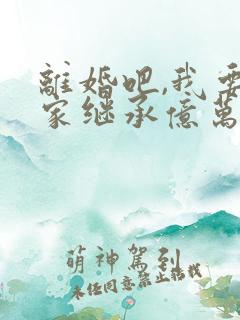 離婚吧,我要
家继承億萬
萌神駕到
未经同意禁止转载